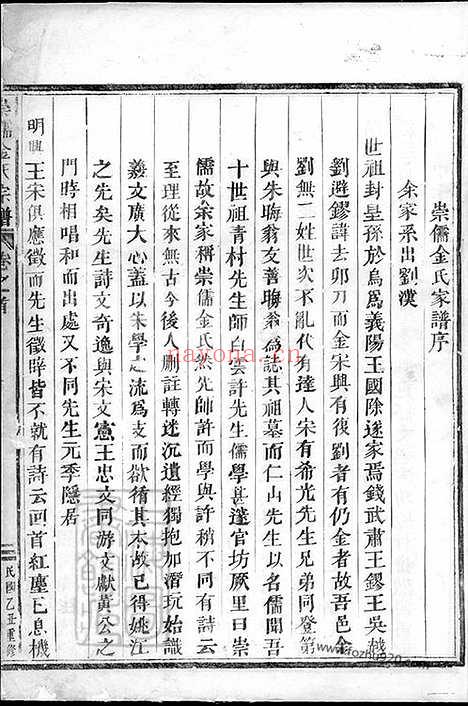 崇儒金氏家譜序
余家系出劉漢
世祖封皇孫於烏爲義陽王國除遂家焉錢武肅王鏐王吳越
劉避鏐諱去卯刀而金宋興有復劉者有仍金者故吾邑金
劉無二姓世次不亂代有達人宋有希光先生兄弟同登第
與朱晦翁友善晦翁爲誌其祖墓而仁山先生以名儒聞吾
十世祖青村先生師白雲許先生儒學甚邃官坊厥里曰崇
儒故余家稱崇儒金氏然先師許而學與許稍不同有詩云
至理從來無古今後人刪註轉迷沉遺經獨抱加潛玩始識
羲文廣大心蓋以朱學之流爲支而欲循其本故已得姚江
之先矣先生詩文奇逸與宋文憲王忠文同游文獻黃公之
門時相唱和而出處又不同先生元季隱居
明興王宋俱應徵而先生徵辟皆不就有詩云回首紅塵已息機
崇儒金氏宗譜 卷之首
民國乙丑重修
nayona.cn
www.fozhu920.com